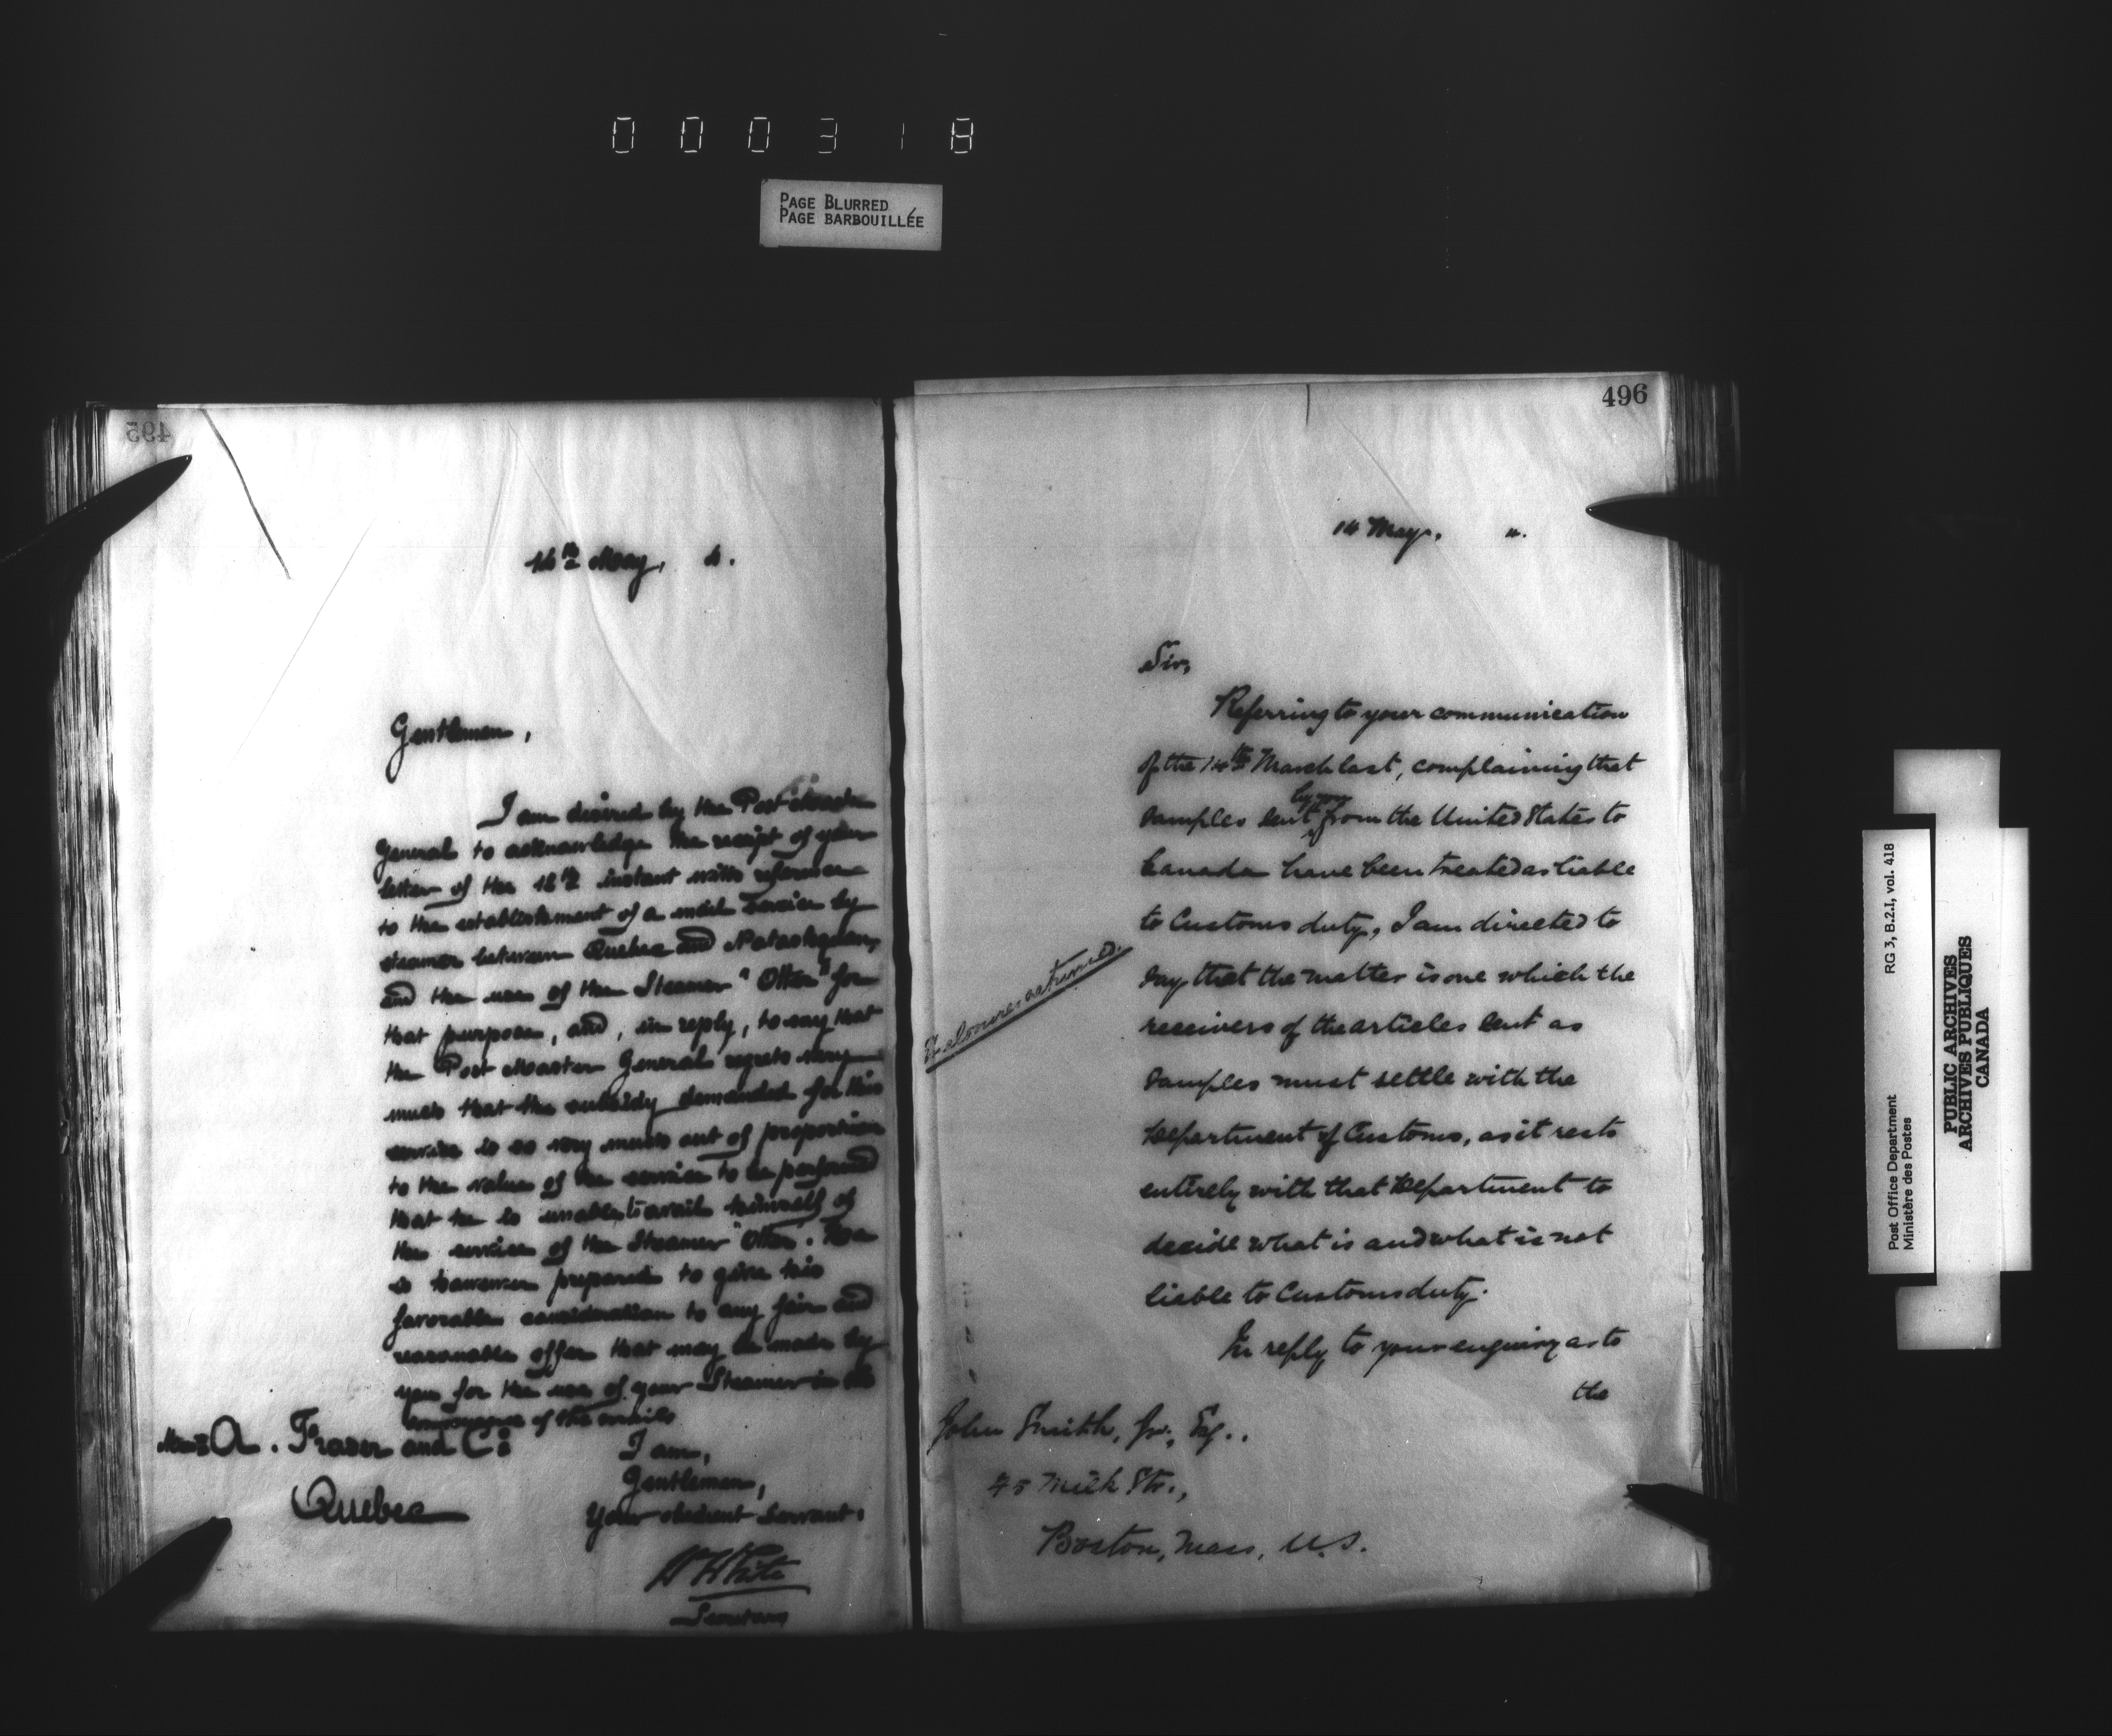 000318
PAGE BLURRED
PAGE BARBOUILLÉE
495
14th May, 4.
Gentlemen,
I am desired by the Post Master
General to acknowledge the receipt of your
letter of the 12th instant with reference
to the establishment of a mail service by
steamer between Quebec and Natashquan,
and the use of the Steamer "Otter" for
that purpose, and, in reply, to say that
the Post Master General regrets very
much that the subsidy demanded for this
service is so very much out of proportion
to the value of the service to be performed
that he is unable to avail himself of
the service of the Steamer "Otter". He
is however prepared to give his
favorable consideration to any fair and
reasonable offer that may be made by
you for the use of your Steamer in the
conveyance of the mails
I am,
Gentlemen,
Your obedient Servant.
Messrs A. Fraser and Co:
Quebec
W White
Secretary
496
14 May, 4.
Sir,
Referring to your communication
of the 14th March last, complaining that
samples sent by you from the United States to
Canada have been treated as liable
to Customs duty, I am directed to
say that the matter is one which the
receivers of the articles sent as
samples must settle with the
Department of Customs, as it rests
entirely with that Department to
decide what is and what is not
liable to Customs duty.
In reply to your enquiry as to
the
Enclosures returned.
John Smith, Jr., Esq..
45 Milk Str.,
Boston, Mass, U.S.
Post Office Department
Ministère des Postes
RG 3, B.2.I, vol. 418
PUBLIC ARCHIVES
ARCHIVES PUBLIQUES
CANADA